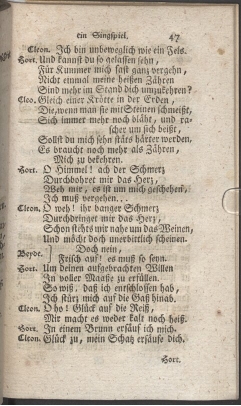 ein Singspiel. 47
Cleon. Ich bin unbeweglich wie ein Fels.
Hort. Und kannst du so gelassen sehn,
Für Kummer mich fast ganz vergehn,
Nicht einmal meine heißen Zähren
Sind mehr im Stand dich umzukehren?
Cleo. Gleich einer Krötte in der Erden,
Die, wenn man sie mit Steinen schmeißt,
Sich immer mehr noch bläht, und ra-
scher um sich beißt,
Sollst du mich sehn stäts härter werden.
Es braucht noch mehr als Zähren,
Mich zu bekehren.
Hort. O Himmel! ach der Schmerz
Durchbohret mir das Herz,
Weh mir, es ist um mich geschehen,
Ich muß vergehen...
Cleon. O weh! ihr banger Schmerz
Durchdringet mir das Herz,
Schon stehts mir nahe um das Weinen,
Und möcht doch unerbittlich scheinen.
Beyde. Doch nein,
Frisch auf! es muß so seyn.
Hort. Um deinen aufgebrachten Willen
In voller Maaße zu erfüllen.
So wiß, daß ich entschlossen hab,
Ich stürz mich auf die Gaß hinab.
Cleon. O ho! Glück auf die Reiß,
Mir macht es weder kalt noch heiß.
Hort. In einem Brunn ersäuf ich mich.
Cleon. Glück zu, mein Schatz ersäufe dich.
Hort.